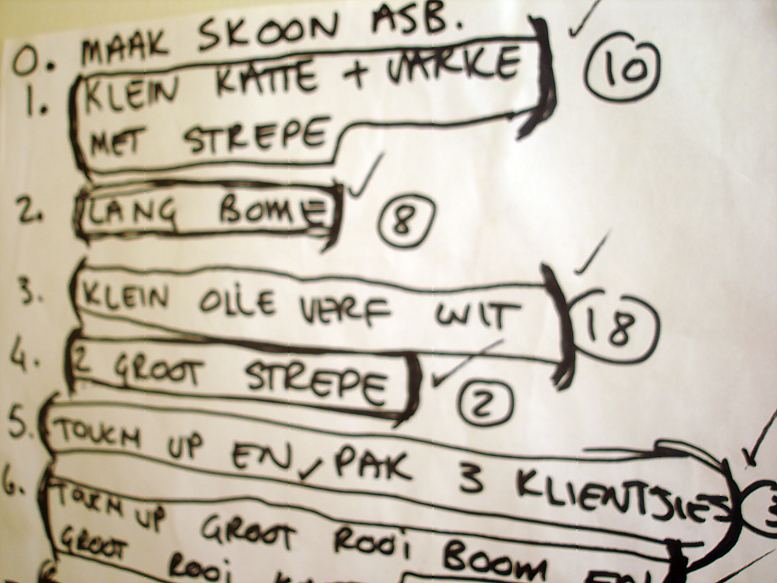 0. MAAK SKOON ASB.
1. KLEIN KATTE + VARKE 10
MET STREPE
2. LANG BOME 8
3. KLEIN OLLE VERF WIT 18
4. 2 GROOT STREPE 2
5. TOUCH UP EN PAK 3 KLIENTJIES 3
6. TOUCH UP GROOT ROOI BOOM EN
GROOT ROOI